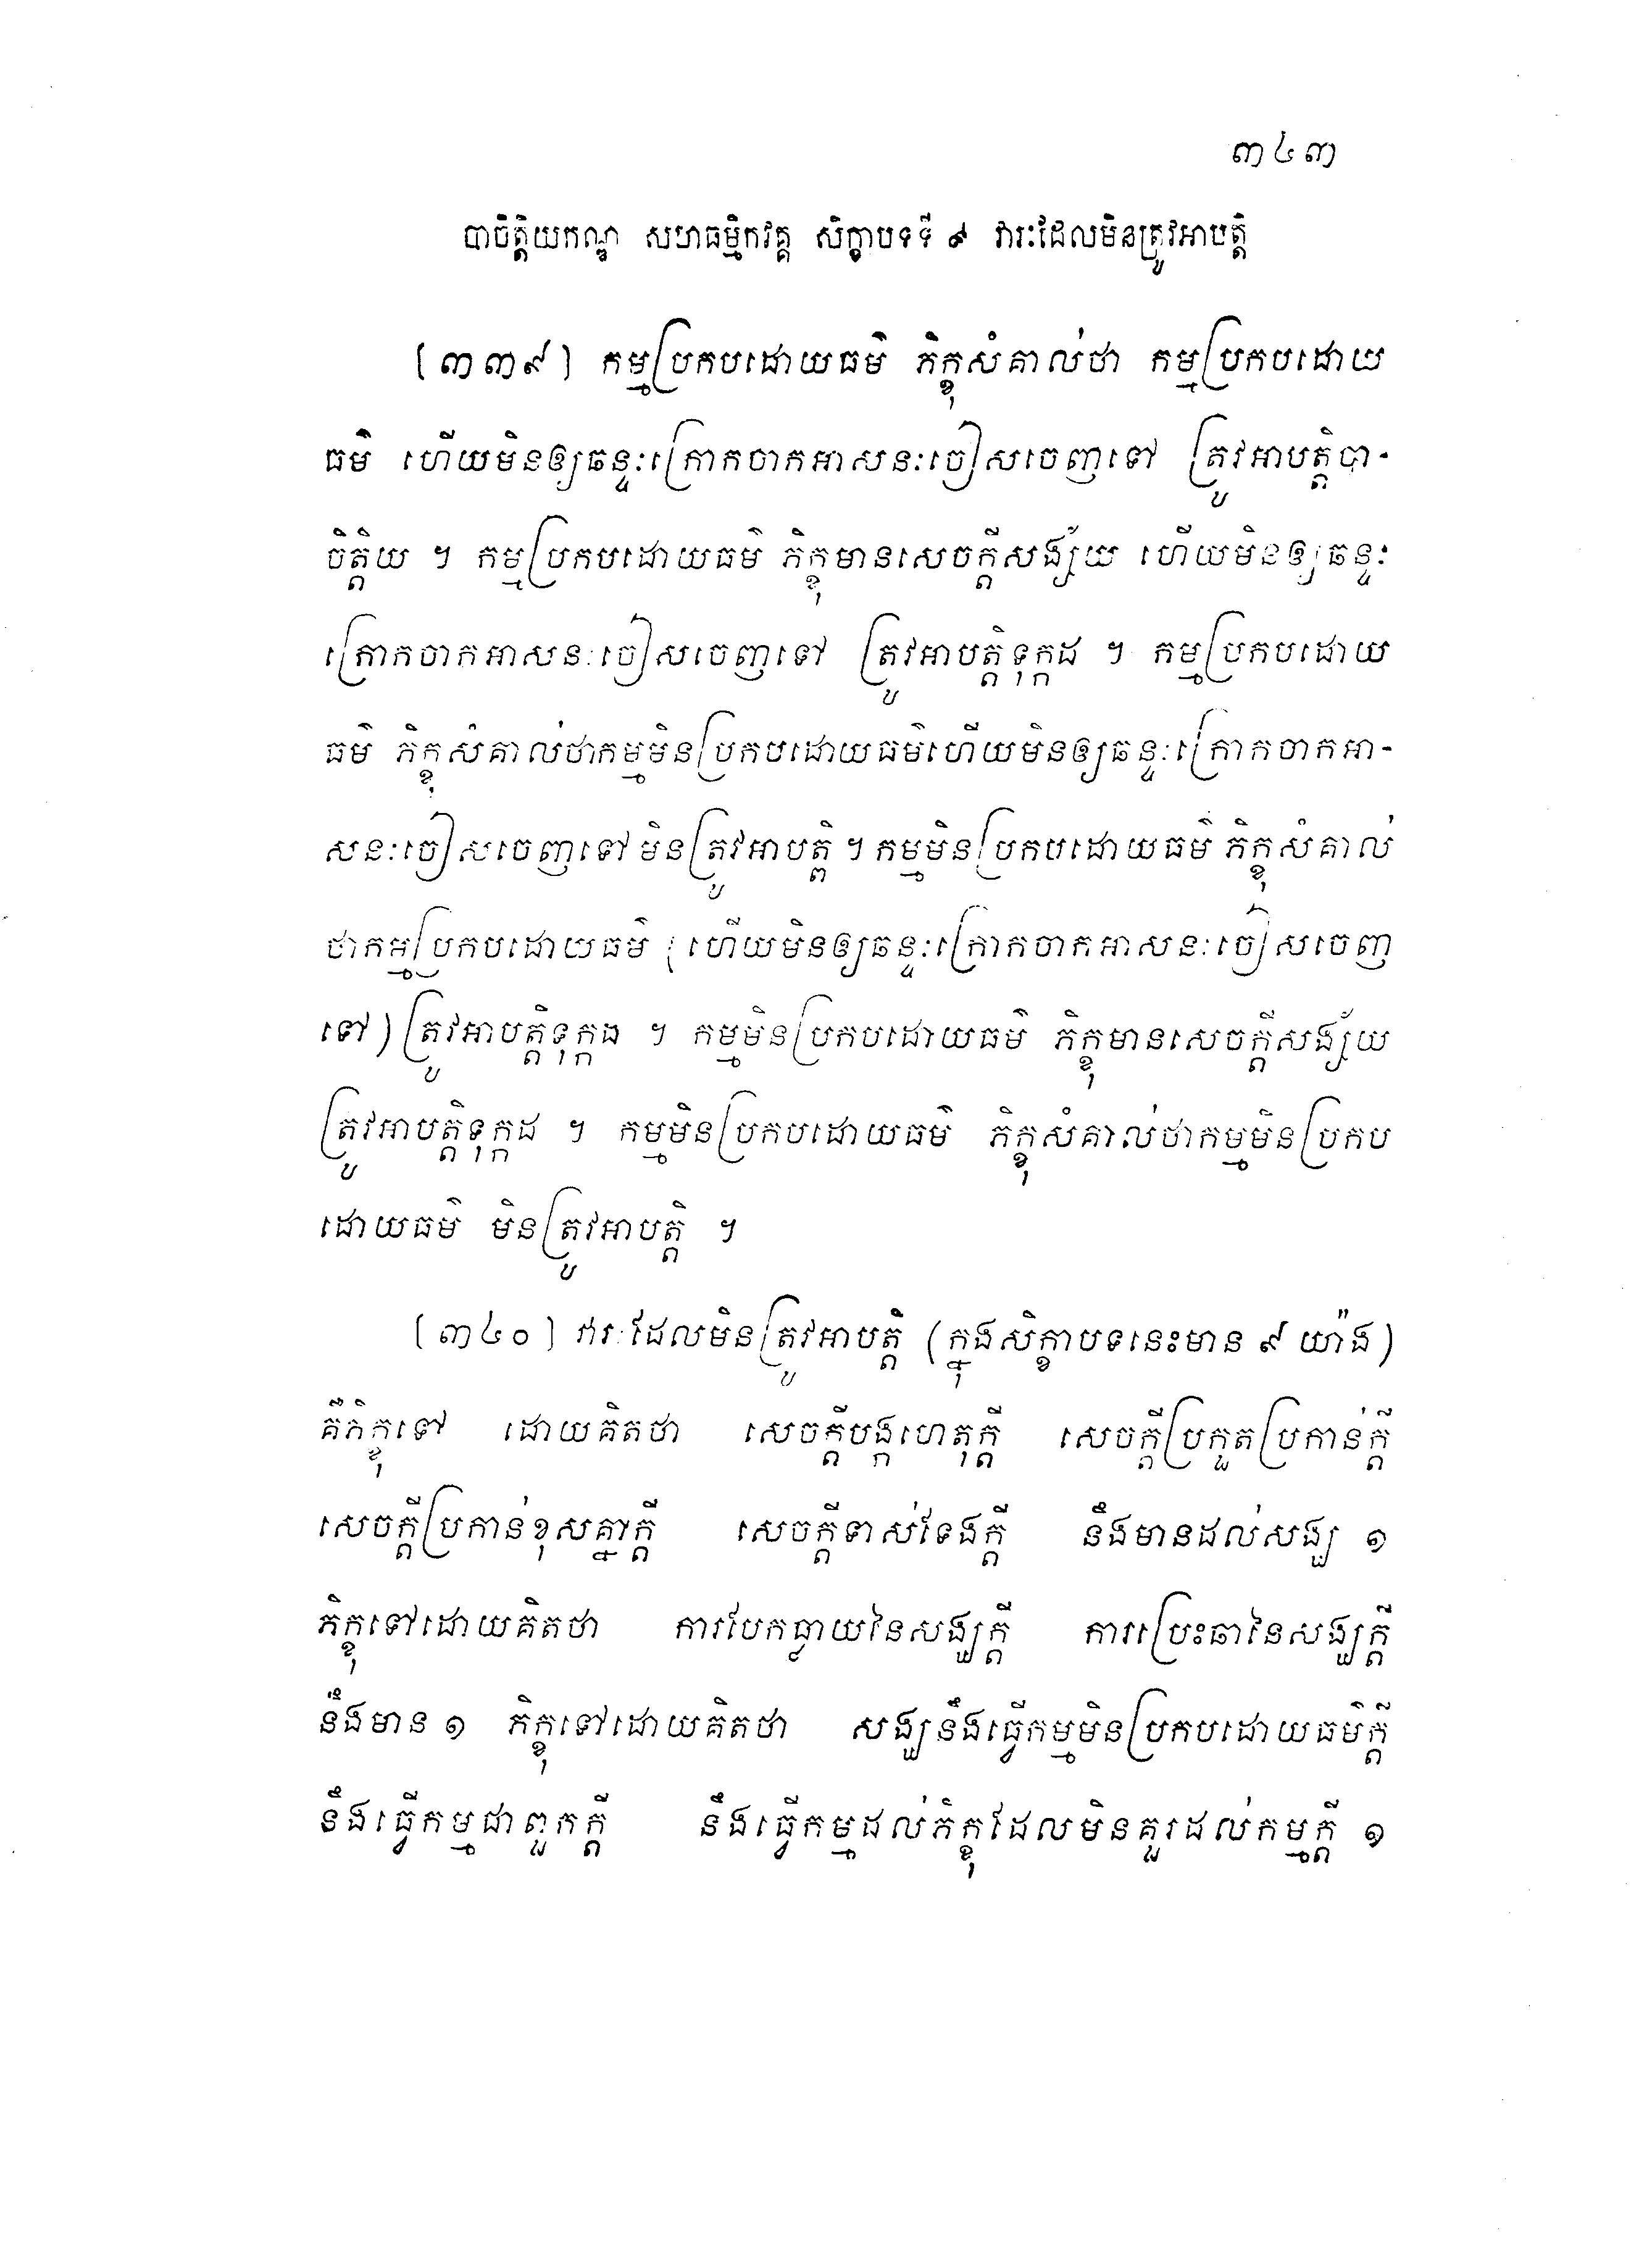 ៣៤៣
បាចិត្តិយកណ្ឌ សហធម្មិកវគ្គ សិក្ខាបទទី ៩ វារៈដែលមិនត្រូវអាបត្តិ
(៣៣៩) កម្មប្រកបដោយធម៌ ភិក្ខុសំគាល់ថា កម្មប្រកបដោយ
ធម៌ ហើយមិនឲ្យឆន្ទៈក្រោកចាកអាសនៈចៀសចេញទៅ ត្រូវអាបត្តិបា-
ចិត្តិយ ។ កម្មប្រកបដោយធម៌ ភិក្ខុមានសេចក្តីសង្ស័យ ហើយមិនឲ្យឆន្ទៈ
ក្រោកចាកអាសនៈចៀសចេញទៅ ត្រូវអាបត្តិទុក្កដ ។ កម្មប្រកបដោយ
ធម៌ ភិក្ខុសំគាល់ថាកម្មមិនប្រកបដោយធម៌ហើយមិនឲ្យឆន្ទៈក្រោកចាកអា-
សនៈចៀសចេញទៅ មិនត្រូវអាបត្តិ ។ កម្មមិនប្រកបដោយធម៌ ភិក្ខុសំគាល់
ថាកម្មប្រកបដោយធម៌ (ហើយមិនឲ្យឆន្ទៈក្រោកចាកអាសនៈចៀសចេញ
ទៅ) ត្រូវអាបត្តិទុក្កដ ។ កម្មមិនប្រកបដោយធម៌ ភិក្ខុមានសេចក្តីសង្ស័យ
ត្រូវអាបត្តិទុក្កដ ។ កម្មមិនប្រកបដោយធម៌ ភិក្ខុសំគាល់ថាកម្មមិនប្រកប
ដោយធម៌ មិនត្រូវអាបត្តិ ។
(៣៤០) វារៈដែលមិនត្រូវអាបត្តិ (ក្នុងសិក្ខាបទនេះមាន ៩ យ៉ាង)
គឺភិក្ខុទៅ ដោយគិតថា សេចក្តីបង្កហេតុក្តី សេចក្តីប្រកួតប្រកាន់ក្តី
សេចក្តីប្រកាន់ខុសគ្នាក្តី សេចក្តីទាស់ទែងក្តី នឹងមានដល់សង្ឃ ១
ភិក្ខុទៅដោយគិតថា ការបែកធ្លាយនៃសង្ឃក្តី ការប្រេះឆានៃសង្ឃក្តី
នឹងមាន ១ ភិក្ខុទៅដោយគិតថា សង្ឃនឹងធ្វើកម្មមិនប្រកបដោយធម៌ក្តី
នឹងធ្វើកម្មជាពួកក្តី នឹងធ្វើកម្មដល់ភិក្ខុដែលមិនគួរដល់កម្មក្តី ១